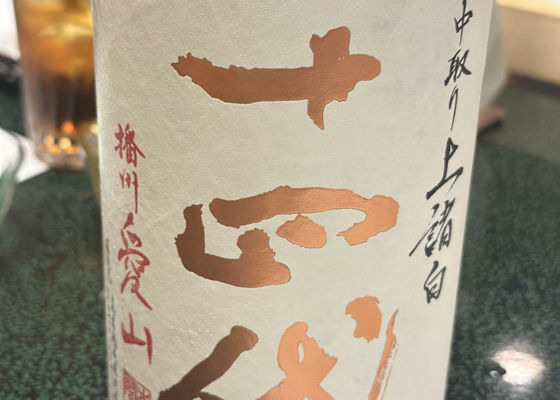 中取り上諸白
十四代
播州愛山